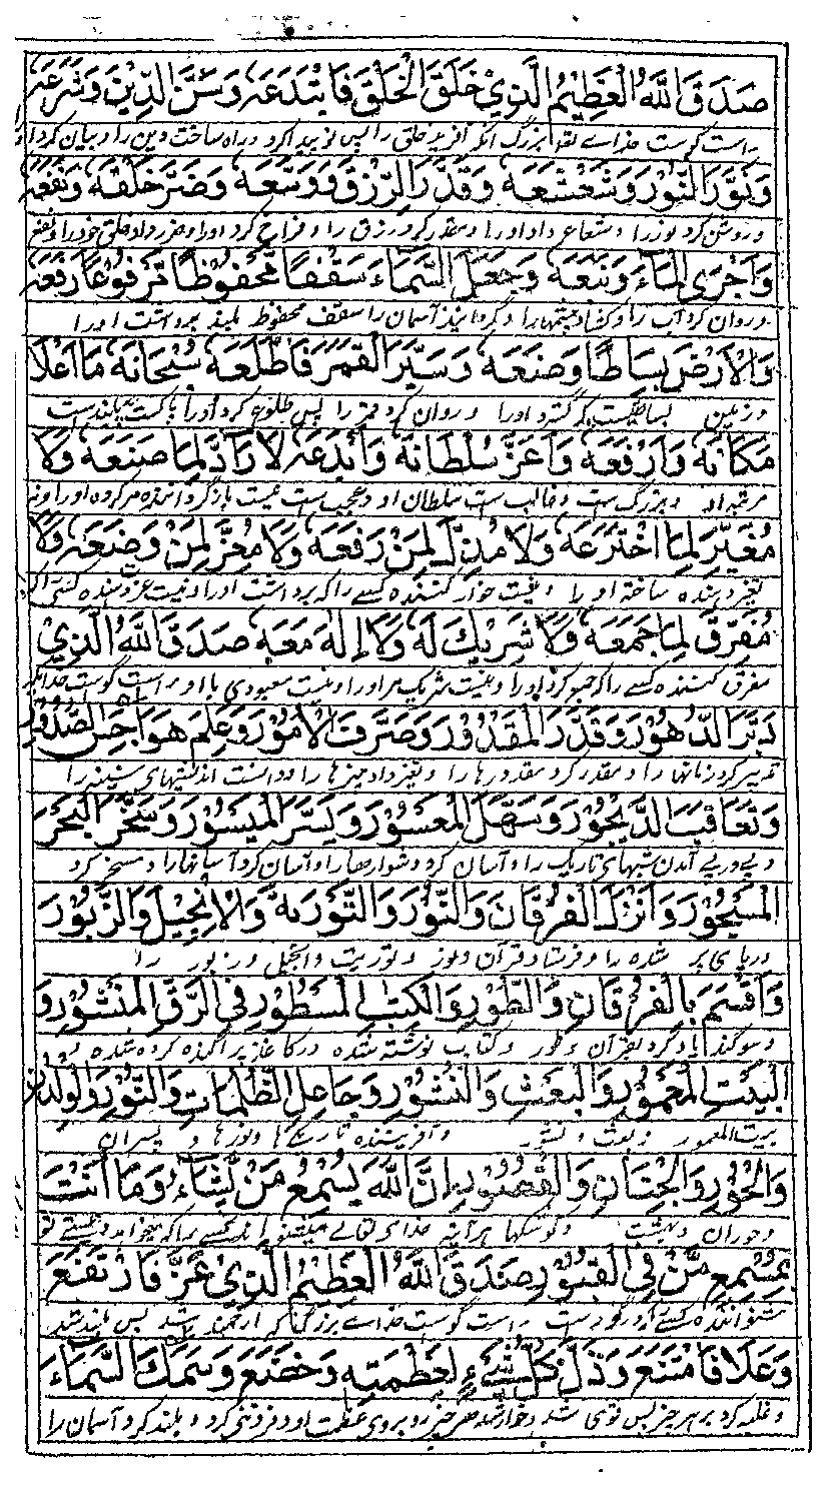 صَدَقَ اللّٰهُ الْعَظِيْمُ الَّذِيْ خَلَقَ الْخَلْقَ فَابْتَدَعَهٗ وَسَنَّ الدِّيْنَ وَشَرَعَهٗ
راست گوست خداے تعالے بزرگ آنکه آفرید خلق را پس نو پیدا کرد و راه ساخت دین را و بیان کرد او
وَنَوَّرَ النُّوْرَ وَشَعْشَعَهٗ وَقَدَّرَ الرِّزْقَ وَوَسَّعَهٗ وَضَرَّ خَلْقَهٗ وَنَفَعَهٗ
و روشن کرد نور را و شعاع داد او را و مقدر کرد رزق را و فراخ کرد او را و ضرر داد خلق خود را و نفع
وَاَجْرَى الْمَآءَ وَنَبَعَهٗ وَجَعَلَ السَّمَآءَ سَقْفًا مَّحْفُوْظًا مَّرْفُوْعًا رَفَعَهٗ
و روان کرد آب را و کشاد چشمها را و گردانید آسمان را سقف محفوظ بلند برداشت او را
وَالْاَرْضَ بِسَاطًا وَضَعَهٗ وَسَيَّرَ الْقَمَرَ فَاَطْلَعَهٗ سُبْحَانَهٗ مَا اَعْلَا
و زمین بساطیست که گسترد او را و روان کرد قمر را پس طلوع کرد او را پاکست چه بلندست
مَكَانَهٗ وَاَرْفَعَهٗ وَاَعَزَّ سُلْطَانَهٗ وَاَبْدَعَهٗ لَا رَآدَّ لِمَا صَنَعَهٗ وَلَا
مرتبه او و بزرگ ست و غالب ست سلطان او و عجیب ست نیست باز گرداننده مر کرده او را و نه
مُغَيِّرَ لِمَا اخْتَرَعَهٗ وَلَا مُذِلَّ لِمَنْ رَفَعَهٗ وَلَا مُعِزَّ لِمَنْ وَضَعَهٗ وَلَا
تغیر دهنده ساخته او را و نیست خوار کننده کسے را که برداشت او را و نیست عزت دهنده کسے را که
مُفَرِّقَ لِمَا جَمَعَهٗ وَلَا شَرِيْكَ لَهٗ وَلَا اِلٰهَ مَعَهٗ صَدَقَ اللّٰهُ الَّذِيْ
مفرق کننده کسے را که جمع کرد او را و نیست شریک مر او را و نیست معبودی با او راست گوست خدا آنکه
دَبَّرَ الدُّهُوْرَ وَقَدَّرَ الْمَقْدُوْرَ وَصَرَّفَ الْاُمُوْرَ وَعَلِمَ هَوَاجِسَ الصُّدُوْرِ
تدبیر کرد زمانها را و مقدر کرد مقدورها را و تغیر داد چیزها را و دانست اندیشهای سینه را
وَتَعَاقُبَ الدَّيْجُوْرِ وَسَهَّلَ الْمَعْسُوْرَ وَيَسَّرَ الْمَيْسُوْرَ وَسَخَّرَ الْبَحْرَ
و پے در پے آمدن شبهای تاریک را و آسان کرد دشوارها را و آسان کرد آسانها را و مسخر کرد
الْمَسْجُوْرَ وَاَنْزَلَ الْفُرْقَانَ وَالنُّوْرَ وَالتَّوْرٰىةَ وَالْاِنْجِيْلَ وَالزَّبُوْرَ
دریای پر شده را و فرستاد قرآن و نور و توریت و انجیل و زبور را
وَاَقْسَمَ بِالْفُرْقَانِ وَالطُّوْرِ وَالْكِتٰبِ الْمَسْطُوْرِ فِى الرَّقِّ الْمَنْشُوْرِ وَ
و سوگند یاد کرد بقرآن و طور و کتاب نوشته شده در کاغذ پراگنده کرده شده و
الْبَيْتِ الْمَعْمُوْرِ وَالْبَعْثِ وَالنُّشُوْرِ وَجَاعِلِ الظُّلُمَاتِ وَالنُّوْرِ وَالْوِلْدَانِ
بیت المعمور و بعث و نشور و آفریننده تاریکیها و نورها و پسران
وَالْحُوْرِ وَالْجِنَانِ وَالْقُصُوْرِ اِنَّ اللّٰهَ يُسْمِعُ مَنْ يَّشَآءُ وَمَا اَنْتَ
و حوران و بهشت و کوشکها هر آینه خدای تعالے میشنواند کسے را که میخواهد و نیستے تو
بِمُسْمِعٍ مَّنْ فِى الْقُبُوْرِ صَدَقَ اللّٰهُ الْعَظِيْمُ الَّذِيْ عَزَّ فَارْتَفَعَ
شنواننده کسے که در گورست راست گوست خداے بزرگ آنکه ارجمند شد پس بلند شد
وَعَلَا فَامْتَنَعَ وَذَلَّ كُلُّ شَيْءٍ لِعَظَمَتِهٖ وَخَضَعَ وَسَمَكَ السَّمَآءَ
و غلبه کرد بر هر چیز پس قوی شد و خوار شد هر چیز روبروی عظمت او و فروتنی کرد و بلند کرد آسمان را